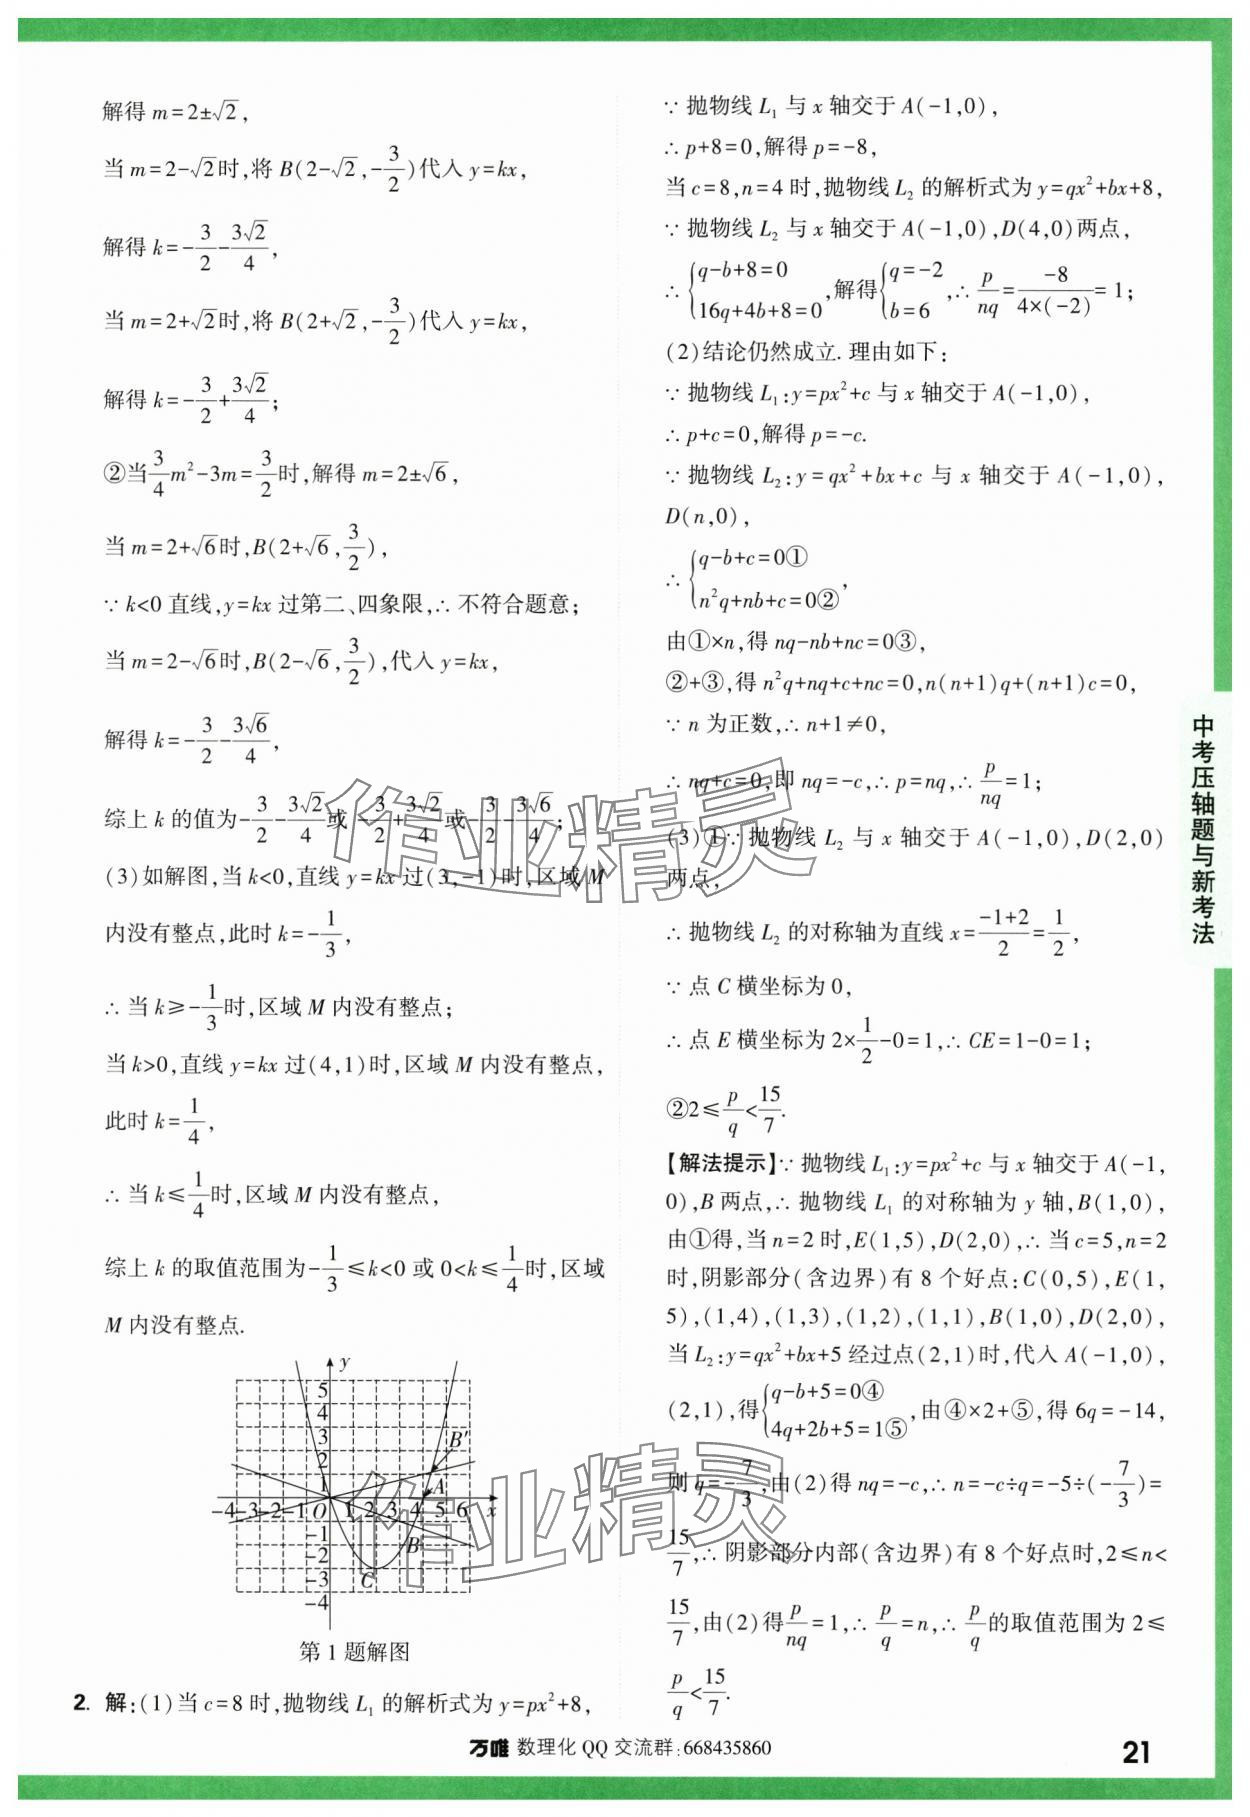 解得 m=2±√2,
当 m=2-√2时,将 B(2-√2,-3/2)代入 y=kx,
解得 k=-3/2-3√2/4,
当 m=2+√2时,将 B(2+√2,-3/2)代入 y=kx,
解得 k=-3/2+3√2/4;
②当3/4m²-3m=3/2时,解得 m=2±√6,
当 m=2+√6时,B(2+√6,3/2),
∵ k<0 直线,y=kx 过第二、四象限,∴ 不符合题意;
当 m=2-√6时,B(2-√6,3/2),代入 y=kx,
解得 k=-3/2-3√6/4,
综上 k 的值为-3/2-3√2/4或 -3/2+3√2/4或-3/2-3√6/4;
(3)如解图,当 k<0,直线 y=kx 过(3,-1)时,区域 M
内没有整点,此时 k=-1/3,
∴ 当 k≥-1/3时,区域 M 内没有整点;
当 k>0,直线 y=kx 过(4,1)时,区域 M 内没有整点,
此时 k=1/4,
∴ 当 k≤1/4时,区域 M 内没有整点,
综上 k 的取值范围为-1/3≤k<0 或 0<k≤1/4时,区域
M 内没有整点.
y
5
4
3
2
1
B′
A
-4 -3 -2 -1 O 1 2 3 4 5 6 x
-1
-2
-3
-4
B
C
第 1 题解图
2. 解:(1)当 c=8 时,抛物线 L₁ 的解析式为 y=px²+8,
∵ 抛物线 L₁ 与 x 轴交于 A(-1,0),
∴ p+8=0,解得 p=-8,
当 c=8,n=4 时,抛物线 L₂ 的解析式为 y=qx²+bx+8,
∵ 抛物线 L₂ 与 x 轴交于 A(-1,0),D(4,0)两点,
∴ {q-b+8=0 16q+4b+8=0,解得{q=-2 b=6,∴ p/nq=-8/4×(-2)=1;
(2)结论仍然成立. 理由如下:
∵ 抛物线 L₁:y=px²+c 与 x 轴交于 A(-1,0),
∴ p+c=0,解得 p=-c.
∵ 抛物线 L₂:y=qx²+bx+c 与 x 轴交于 A(-1,0),
D(n,0),
∴ {q-b+c=0① n²q+nb+c=0②,
由①×n,得 nq-nb+nc=0③,
②+③,得 n²q+nq+c+nc=0,n(n+1)q+(n+1)c=0,
∵ n 为正数,∴ n+1≠0,
∴ nq+c=0,即 nq=-c,∴ p=nq,∴ p/nq=1;
(3)①∵ 抛物线 L₂ 与 x 轴交于 A(-1,0),D(2,0)
两点,
∴ 抛物线 L₂ 的对称轴为直线 x=-1+2/2=1/2,
∵ 点 C 横坐标为 0,
∴ 点 E 横坐标为 2×1/2-0=1,∴ CE=1-0=1;
②2≤p/q<15/7.
【解法提示】∵ 抛物线 L₁:y=px²+c 与 x 轴交于 A(-1,
0),B 两点,∴ 抛物线 L₁ 的对称轴为 y 轴,B(1,0),
由①得,当 n=2 时,E(1,5),D(2,0),∴ 当 c=5,n=2
时,阴影部分(含边界)有 8 个好点:C(0,5),E(1,
5),(1,4),(1,3),(1,2),(1,1),B(1,0),D(2,0),
当 L₂:y=qx²+bx+5 经过点(2,1)时,代入 A(-1,0),
(2,1),得{q-b+5=0④ 4q+2b+5=1⑤,由④×2+⑤,得 6q=-14,
则 q=-7/3,由(2)得 nq=-c,∴ n=-c÷q=-5÷(-7/3)=
15/7,∴ 阴影部分内部(含边界)有 8 个好点时,2≤n<
15/7,由(2)得p/nq=1,∴ p/q=n,∴ p/q的取值范围为 2≤
p/q<15/7.
中考压轴题与新考法
作业精灵
作业精灵
万唯 数理化 QQ 交流群:668435860
21